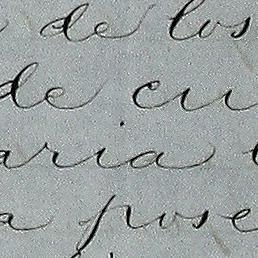 de los
de cu
aria
a pose